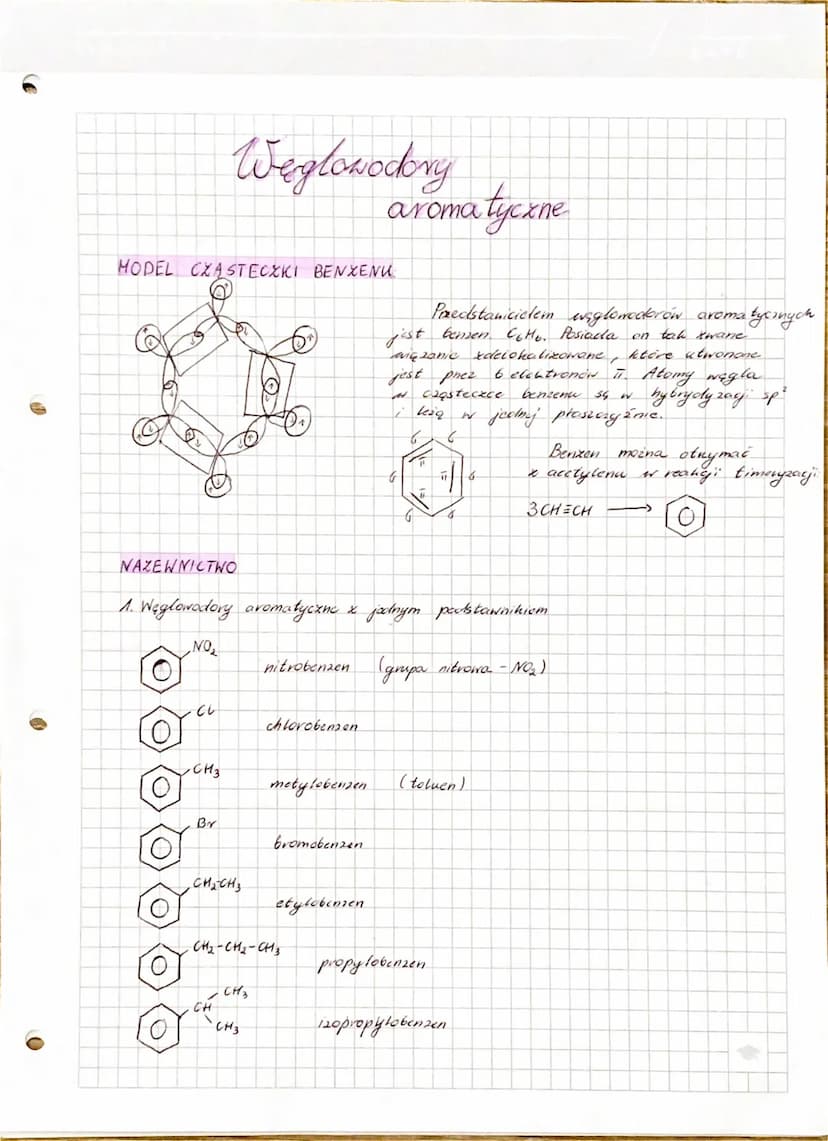 Węglowodory
aromatyczne
MODEL CZĄSTECZKI BENZENU
Przedstawicielem węglowodorów aromatycznych
jest benzen C₆H₆. Posiada on tak zwane
wiązanie zdelokalizowane, które utworzone
jest przez 6 elektronów π. Atomy węgla
w cząsteczce benzenu są w hybrydyzacji sp²
i leżą w jednej płaszczyźnie.
Benzen można otrzymać
z acetylenu w reakcji trimeryzacji
3CH≡CH ⟶
NAZEWNICTWO
1. Węglowodory aromatyczne z jednym podstawnikiem
NO₂ nitrobenzen (grupa nitrowa - NO₂)
Cl chlorobenzen
CH₃ metylobenzen (toluen)
Br bromobenzen
CH₂-CH₃ etylobenzen
CH₂-CH₂-CH₃ propylobenzen
CH₃
CH izopropylobenzen
CH₃